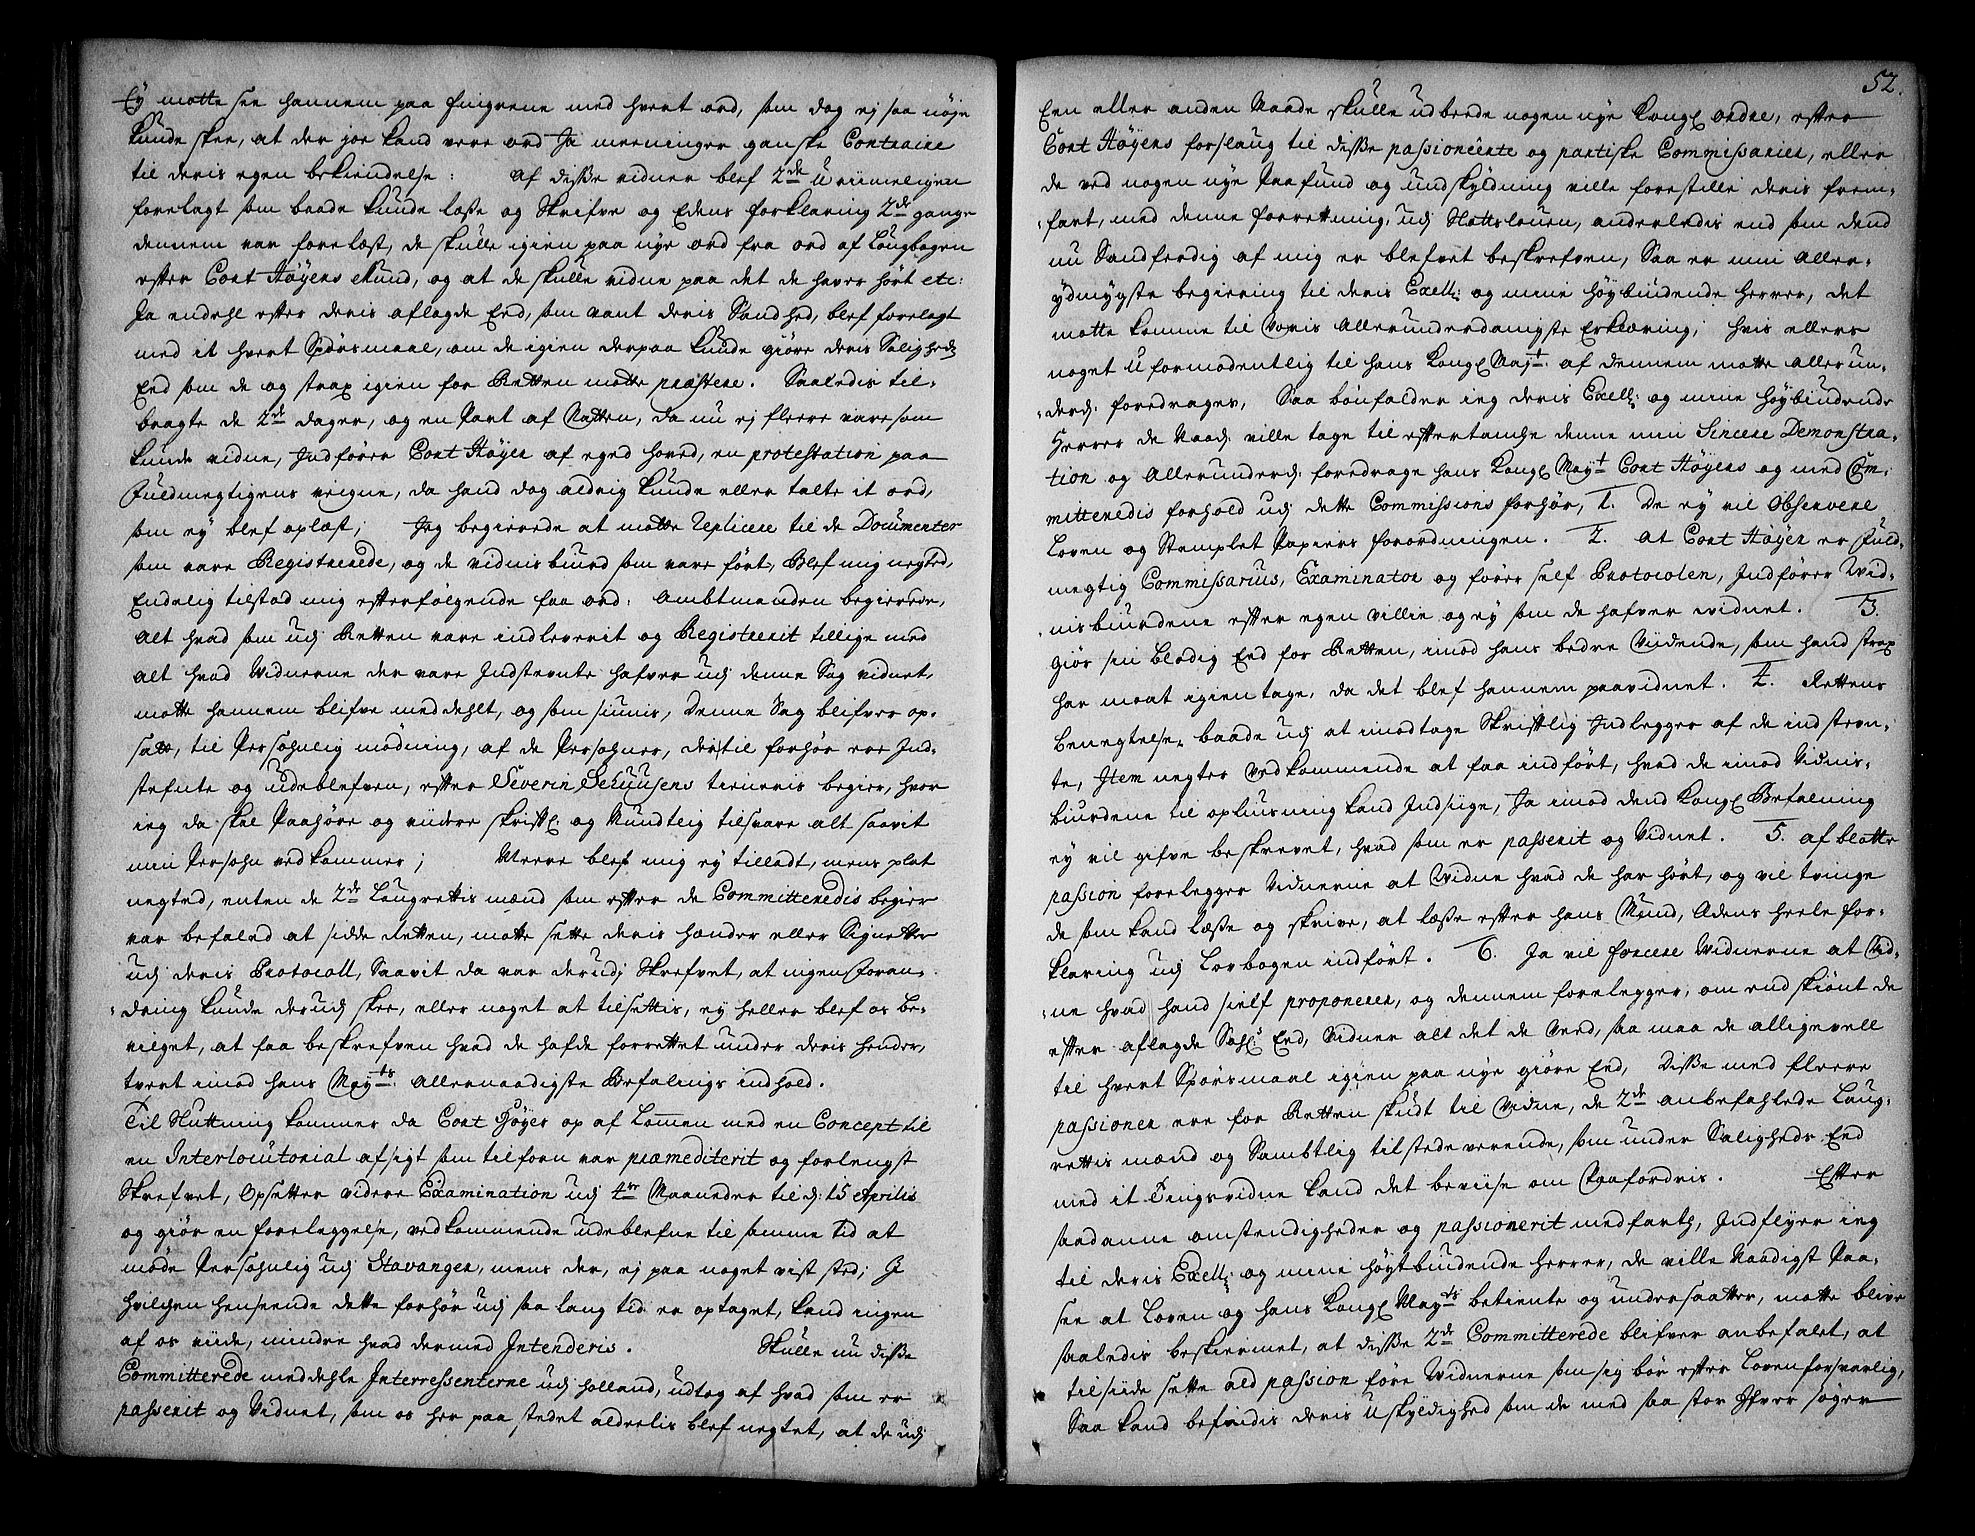 Ey motte see hannem paa fingrene med hvert ord, som dog ej saa nøje
kunde skee, at der joe kand vere ord Ja meeninger ganske Contraire
til deris egen bekiendelse: af disse vidner blef 2de Urimeligen
forelagt som baade kunde læse og Skrifve og Edens forklaring 2de gange
dennem var forelæst, de skulle igien paa nye ord fra ord af Laugbogen
efter Cort Høyers Mund, og at de skulle vidne paa det de haver hørt etc:
Ja endehl efter deris aflagde Eed, som vant deris Sandhed, blef forelagt
med it hvert Spørsmaal, om de igien derpaa kunde giøre deris Saligheds
Eed som de og strax igien for Retten motte præstere. Saaledis til-
bragte de 2de dager, og en Part af Natten, da nu ej fleere vare som
kunde vidne, Indfører Cort Høyer af eged hoved, en protestation paa
Fuldmegtigens veigne, da hand dog aldrig kunde eller talte it ord,
som ey blef oplæst; Jeg begierede at motte Replicere til de Documenter
som vare Registrerede, og de vidnisbuurd som vare ført, Blef mig negted,
Endelig tilstod mig efterfølgende faa ord: Ambtmanden begierede,
alt hvad som udj Retten vare indleverit og Registrerit tillige med
alt hvad Vidnerne der vare Indstevnte hafver udj denne Sag vidnet,
motte hannem blifve meddehlt, og som siunis, denne Sag blifver op-
satt, til Persohnlig mødning, af de Persohner, dertil forhør ere Ind-
stefnte og udeblefven, efter Severin Sehuusens tieneris begier, hvor
ieg da skal Paahøre og viidere skriftl: og Mundtlig tilsvare alt saavit
min Persohn vedkommer; Meere blef mig ey tilladt, mens plat
negted, enten de 2de Laugrettis mænd som efter de Committeredis begier
var befaled at sidde Retten, motte sette deris hænder eller Signetter
udj deris Protocoll, Saavit da var derudj Skrefvet, at ingen Foran-
dring kunde derudj skee, eller noget at tilsettis, ey heller blef os be-
vilget, at faa beskrefven hvad de hafde forrettet under deris hender,
tvert imod hans Mayts: Allernaadigste Befalings indhold.
Til Sluttning kommer da Cort Høyer op af Lommen med en Concept til
en Interlocutorial afsigt som tilforn var præmediterit og forlengst
Skrefvet, Opsetter videre Examination udj 4re Maaneder til d: 15 Aprilis
og giør en foreleggelse, vedkommende udeblefne til samme tid at
møde Persohnlig udj Stavanger, mens der, ej paa noget vist sted; I
hvilchen henseende dette forhør udj saa lang tid er optaget, kand ingen
af os viide, mindre hvad dermed Intenderis. Skulle nu disse
Committerede meddehle Interressenterne udj Holland, udtog af hvad som er
passerit og Vidnet, som os her paa stedet aldeelis blef negtet, at de udj
52.
Een eller anden Maade skulle udbeede nogen nye Kongl ordre, efter
Cort Høyers forslaug til disse passionerte og partiske Commissarier, eller
de ved nogen nye Paafund og undskyldning ville forestille deris frem-
fart, med denne forrettning, udj Slottslouen, anderledis end som dend
nu Sandferdig af mig er blefvet beskrefven, Saa er min Aller-
ydmygste begiering til deris Excell: og mine høybiudende Herrer, det
motte komme til Voris Allerunderdanigste Erklæring; hvis ellers
noget Uformodentlig til hans Kongl Mayt: af dennem motte allerun-
derd: foredrages, Saa bønfalder ieg deris Excell: og mine høybiudende
Herrer de Naad: ville tage til eftertanche denne min Sincere Demonstra-
tion og Allerunderd: foredrage hans Kongl Mayt Cort Høyers og med Com-
mitteredis forhold udj dette Commissions forhør, 1. De ey vil Observere
Loven og Stemplet Papiers forordningen. 2. at Cort Høyer er Fuld-
megtig Commissarius, Examinator og fører self Protocolen, Indfører Vid-
nisbuurdene efter egen villie og ey som de hafver vidnet. 3.
giør sin Lodig Eed for Retten, imod hans bedre Viidende, som hand strax
har maat igientage, da det blef hannem paavidnet. 4. Rettens
Benegtelse, baade udj at imodtage Skriftlig Indlegger af de indstevn-
te, Item negter Vedkommende at faa indført, hvad de imod Vidnis-
buurdene til opliusning kand Indsiige, Ja imod dend Kongl Befalning
ey vil gifve beskrevet, hvad som er passerit og Vidnet. 5. af blotte
passion forelegger Vidnerne at Vidne hvad de har hørt, og vil tvinge
de som kand læse og skrive, at læse efter hans Mund, Edens heele for-
klaring udj Lovbogen indført. 6. Ja vil forcere Vidnerne at Vid-
ne hvad hand sielf proponerer, og dennem forelegger, om endskiønt de
efter aflagde Sahl: Eed, Vidner alt det de Veed, saa maa de alligevell
til hvert Spørsmaal igien paa nye giøre Eed, Disse med fleere
passioner ere for Retten skudt til Vidne, de 2de anbefahlede Laug-
rettis mænd og Sambtlig tilstedeverende, som under Saligheds Eed
med it Tingsvidne kand det beviise om Paafordris. Efter
saadanne omstendigheder og passionerit medfarth, Indflyer ieg
til deris Excell: og mine høytbiudende Herrer, de ville Naadigst Paa-
see at Loven og hans Kongl Mayts betiente og undersaatter, motte blive
saaledis beskiermet, at disse 2de Committerede blifver anbefalet, at
tilsiide sette ald passion føre Vidnerne som sig bør efter Loven forsvarlig,
Saa kand befindis deris Uskyldighed som de med saa stor Ifver søger